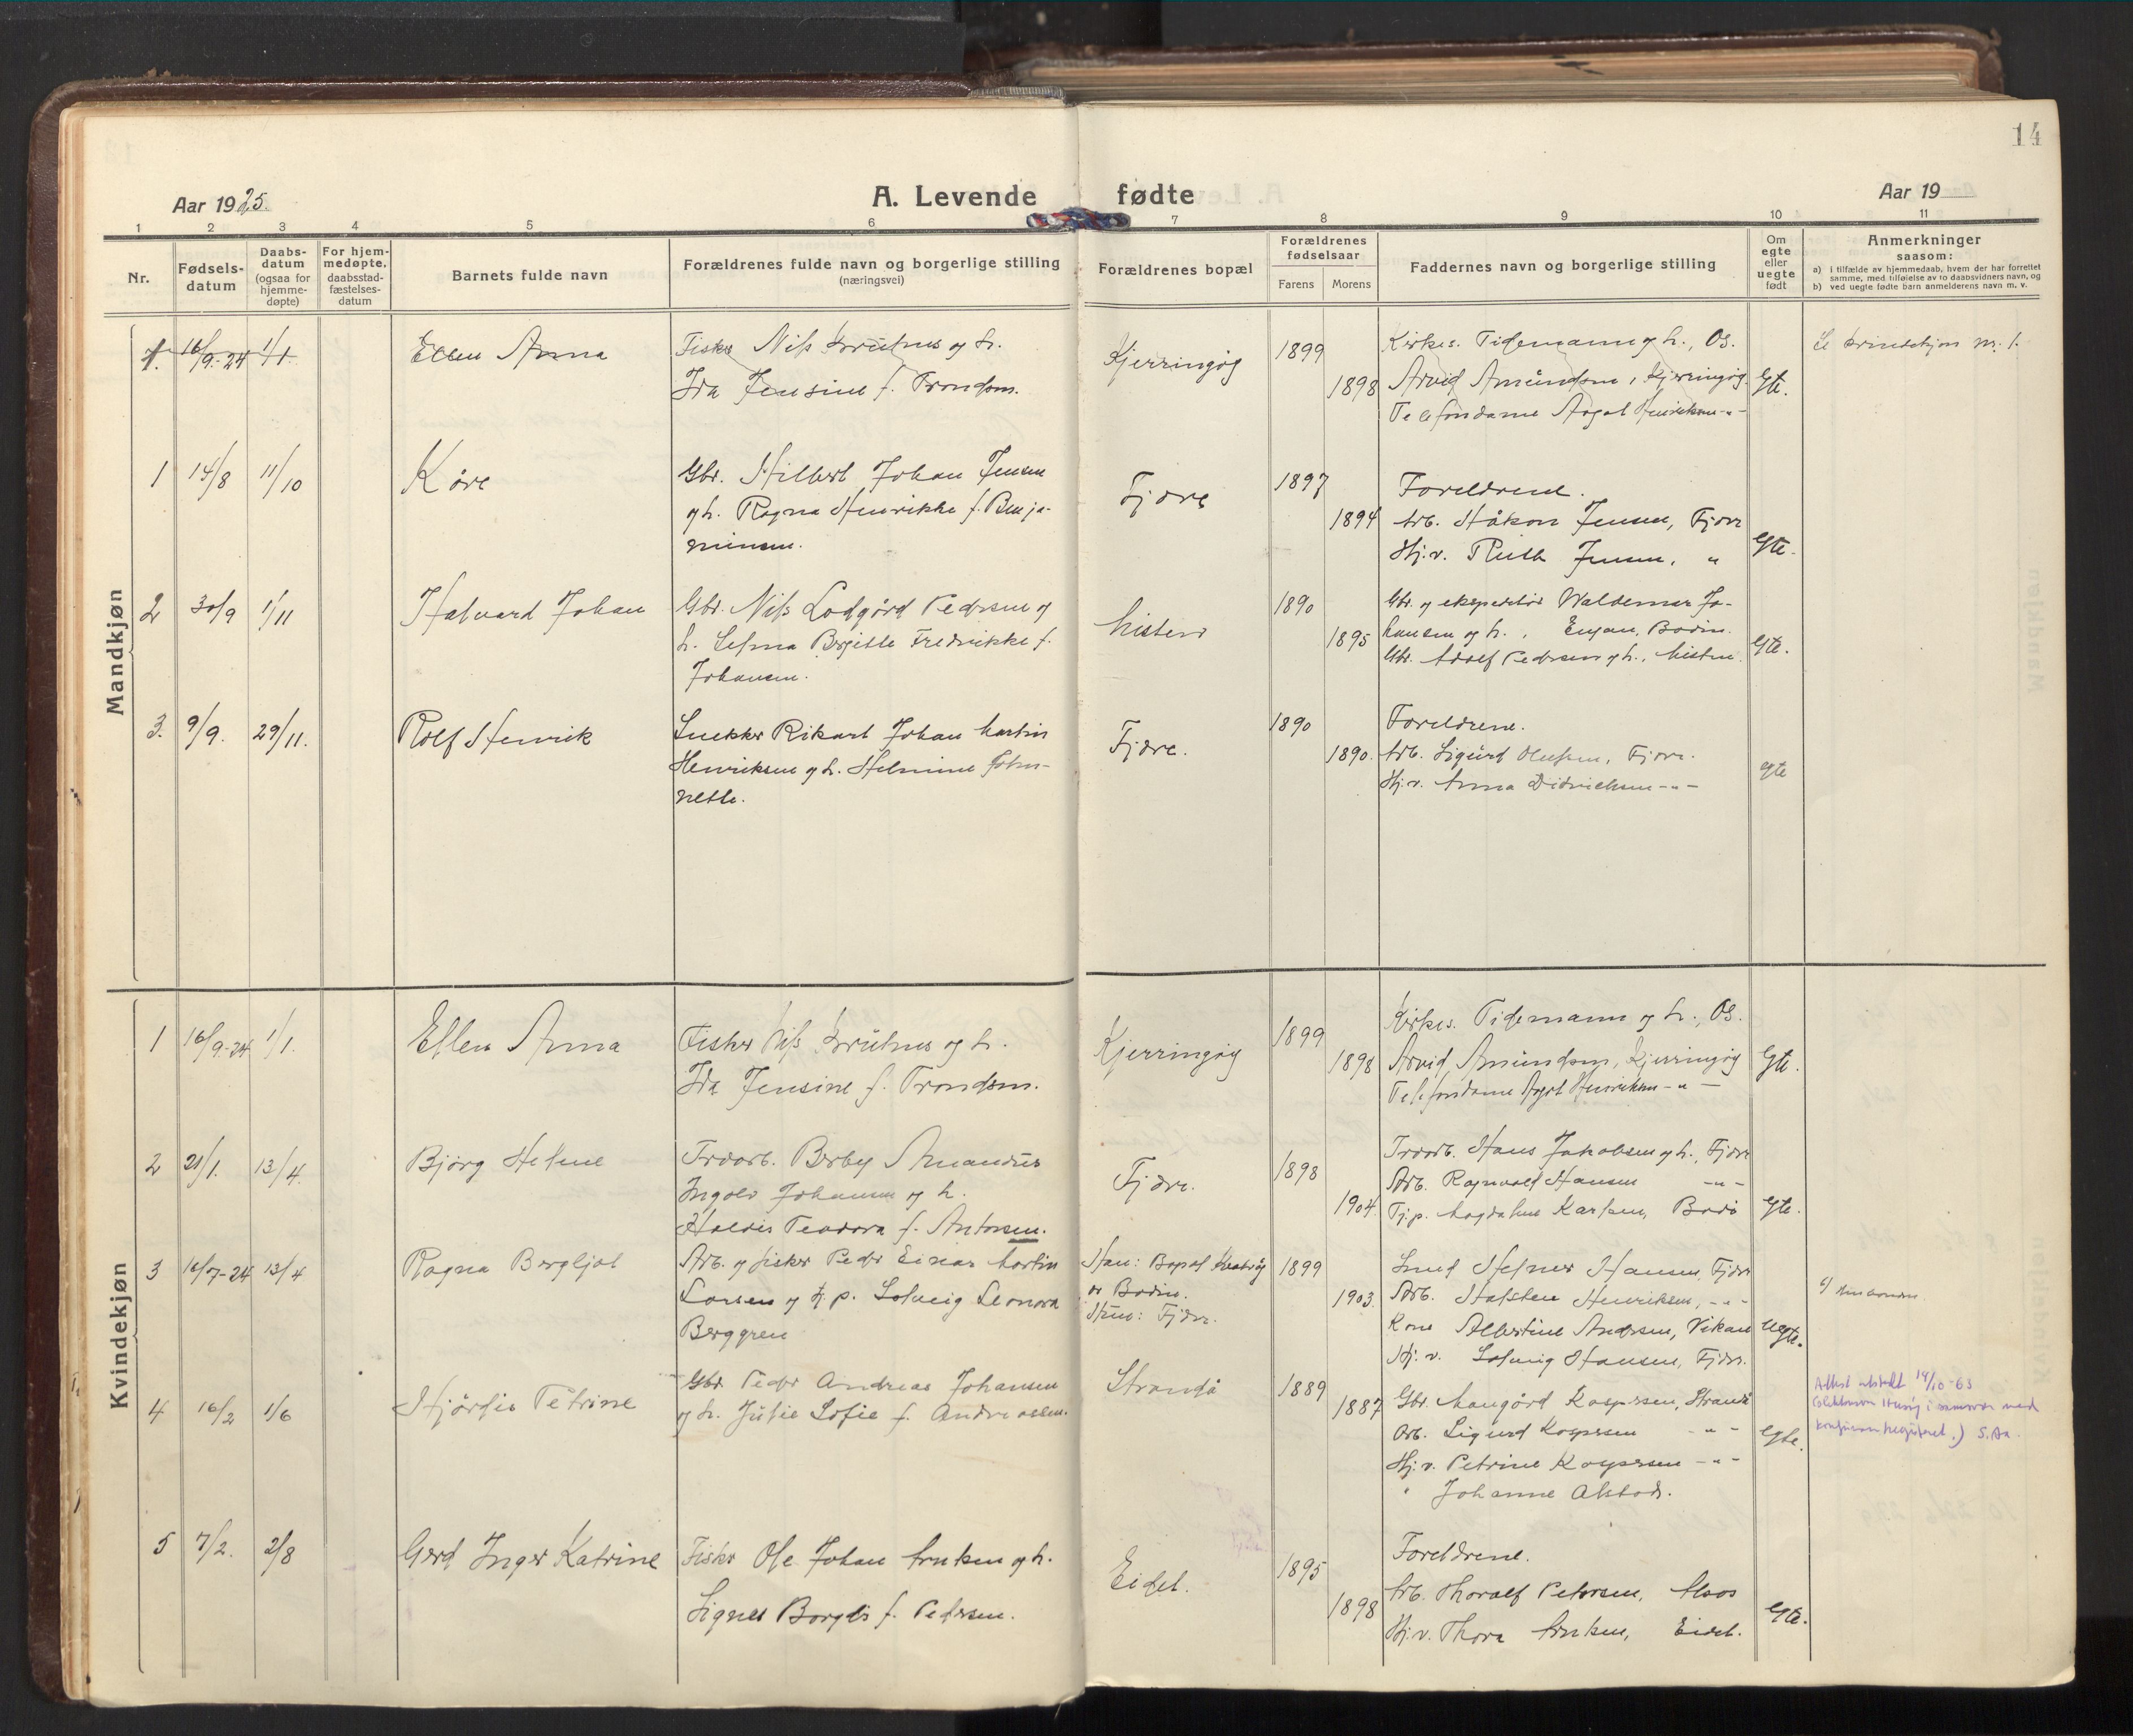 14
Aar 1925.
A. Levende fødte
Aar 19
1 2 3 4 5 6 7 8 9 10 11
Nr.
Fødsels-
datum
Daabs-
datum
(ogsaa for
hjemme-
døpte)
For hjem-
medøpte,
daabsstad-
fæstelses-
datum
Barnets fulde navn
Forældrenes fulde navn og borgerlige stilling
(næringsvei)
Forældrenes bopæl
Forældrenes
fødselsaar
Farens Morens
Faddernes navn og borgerlige stilling
Om
egte
eller
uegte
født
Anmerkninger
saasom:
a) i tilfælde av hjemmedaab, hvem der har forrettet
samme, med tilføielse av to daabsvidners navn, og
b) ved uegte fødte barn anmelderens navn m. v.
Mandkjøn
1. 16/9-24 1/1.
Ellen Anna
Fisker Nils og h.
Ida Jensine f. Trondsen.
Kjerringøy
1899
1898
Kirkes. Tidemann og h., Os.
Arvid Amundsen, Kjerringøy
Telefondame Aagot Henriksen -"-
Egte.
Se kvindekjøn nr. 1.
1 14/8 11/10
Kåre
Gbr. Hilbert Johan Jensen
og h. Ragna Henrikke f. Benja-
minsen.
Fjære
1897
1894
Foreldrene.
Arb. Håkon Jensen, Fjære
Hj.v. Ruth Jensen, "
Egte.
2 30/9 1/11
Halvard Johan
Gbr. Nils Lodgård Pedersen og
h. Selma Bergitte Fredrikke f.
Johansen.
Misten
1890
1895
Gbr. og ekspeditør Waldemar Jo-
hansen og h., Bodin.
Gbr. Adolf Pedersen og h., Misten.
Egte.
3. 9/9. 29/11.
Rolf Henrik
Snekker Rikart Johan Martin
Henriksen og h. Helmine John-
nette.
Fjære.
1890
1890.
Foreldrene.
Arb. Sigurd Olufsen, Fjære.
Hj.v. Anna Didriksen -"-
Egte
Kvindekjøn
1 16/9-24 1/1.
Ellen Anna
Fisker Nils og h.
Ida Jensine f. Trondsen.
Kjerringøy
1899
1898
Kirkes. Tidemann og h., Os.
Arvid Amundsen, Kjerringøy
Telefondame Aagot Henriksen -"-
Egte.
2 21/1. 13/4.
Bjørg Helene
Trearb. Berby Amandus
Ingolv Johansen og h.
Haldis Teodora f. Antonsen.
Fjære.
1898
1904.
Trearb. Hans Jakobsen og h., Fjære
Arb. Ragnvald Hansen -"-
Tj.p. Magdalene Karlsen, Bodø
Egte.
3 16/7-24 13/4
Ragna Bergljot
Arb. og fisker Peder Einar Martin
Larsen og tj.p. Solveig Leonora
Berggren
Han: Bopæl
Bodin.
Hun: Fjære.
1899
1903.
Smed Helmer Hansen, Fjære
Arb. Halsten Henriksen, -"-
Kone Albertine Andersen, Vikan
Hj.v. Solveig Hansen, Fjære.
Uegte.
4 16/2 1/6
Hjørdis Petrine
Gbr. Peder Andreas Johansen
og h. Julie Sofie f. Andreassen.
Strandå
1889
1887
Gbr. Maugård Kaspersen, Strandå
Arb. Sigurd Kaspersen -"-
Hj.v. Petrine Kaspersen -"-
" Johanne Alstad.
Egte.
Attest utstedt 14/10-63
i samsvar med
S.Aa.
5 7/2. 2/8
Gerd Inger Katrine
Fisker Ole Johan og h.
Signes Borghis f. Pedersen.
Eidet.
1895
1898
Foreldrene.
Arb. Thoralf Petersen, Alsos
Hj.v. Thora Eidet.
Egte.